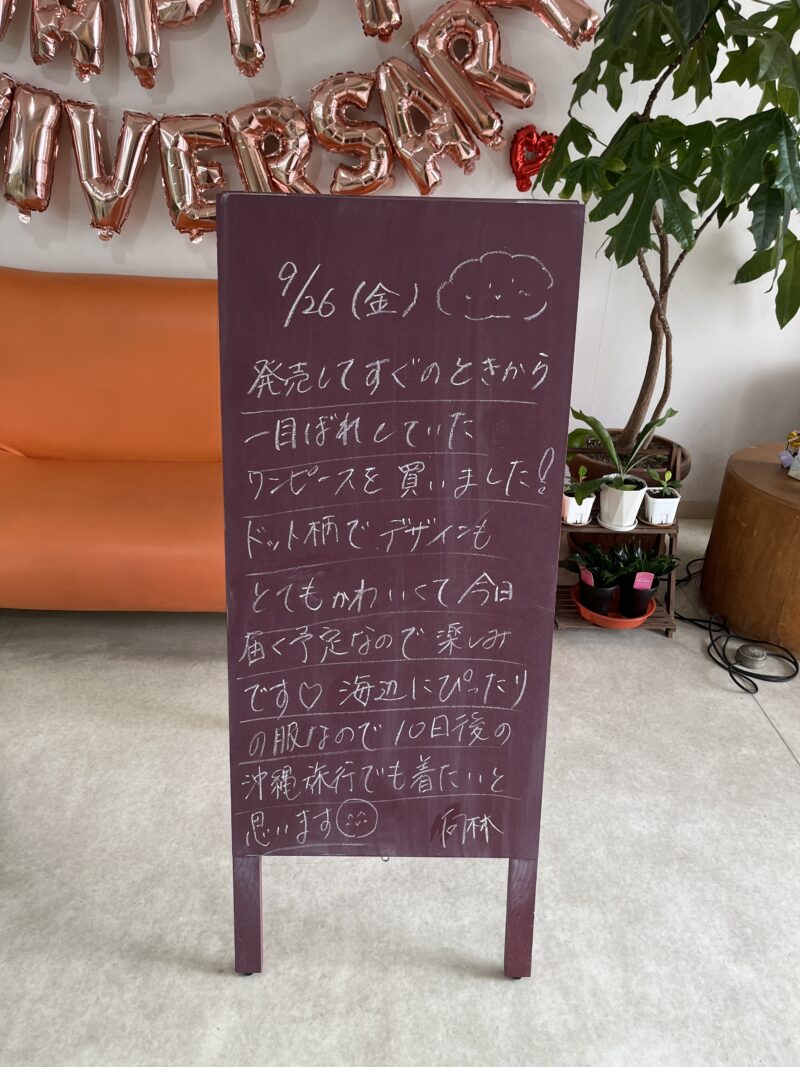 APP
IVERSARY
9/26(金)
発売してすぐのときから
一目ぼれしていた
ワンピースを買いました!
ドット柄でデザインも
とてもかわいくて今日
届く予定なので楽しみ
です♡ 海辺にぴったり
の服なので10日後の
沖縄旅行でも着たいと
思います 向林